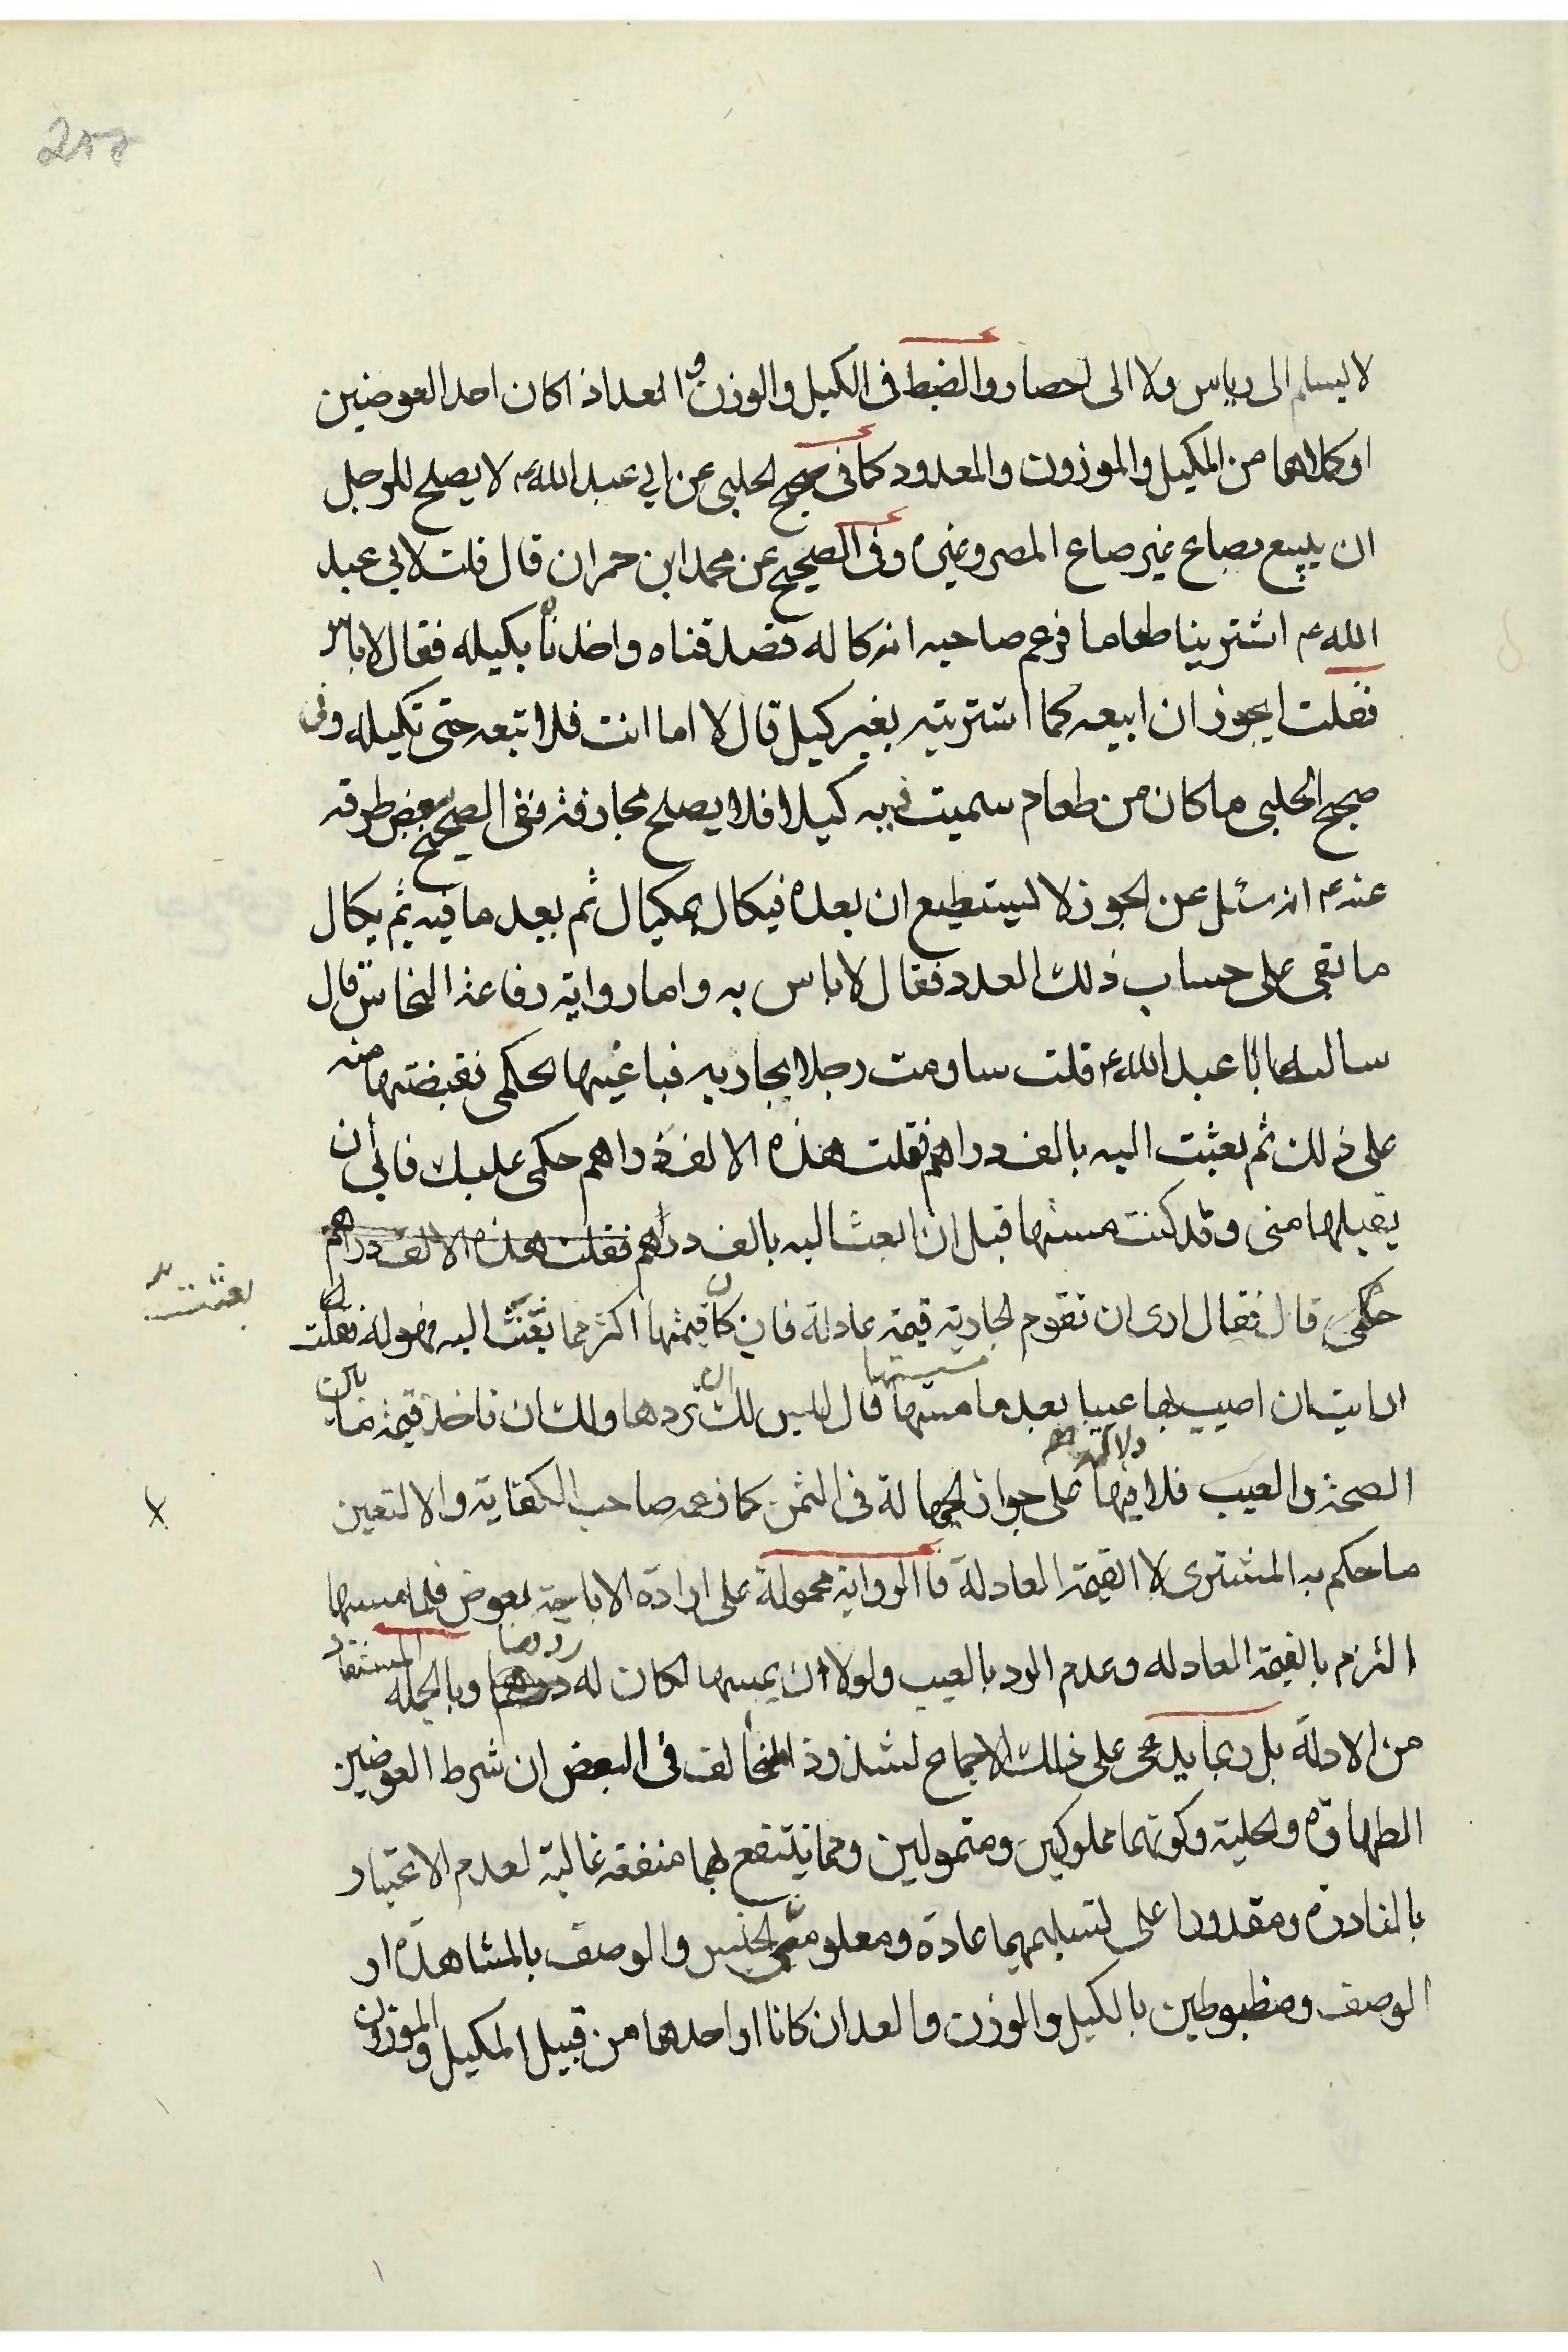 257
لا ليسلم الى دياس ولا الى حصاد والضبط فى الكيل والوزن و العد اذا كان احد العوضين
او كلاهما من المكيل والموزون والمعدود كما فى صحيح الحلبى عن ابى عبد الله ع لا يصلح للرجل
ان يبيع بصاع غير صاع المصر وغيره وفى الصحيح عن محمد ابن حمران قال قلت لابى عبد
الله ع اشترينا طعاما فزعم صاحبه انه كاله فصدقناه واخذناه بكيله فقال لا باس
فقلت ايجوز ان ابيعه كما اشتريته بغير كيل قال لا اما انت فلا تبعه حتى تكيله وفى
صحيح الحلبى ما كان من طعام سميت فيه كيلا فلا يصلح مجازفة ففى الصحيح ببعض طرقه
عنه ع انه سئل عن الجوز لا ليستطيع ان بعده فيكال بمكيال ثم بعد ما فيه ثم يكال
ما بقى على حساب ذلك العدد فقال لا باس به واما رواية رفاعة النخاس قال
سالت ابا عبد الله ع قلت ساومت رجلا بجاريه فباعنيها بحكمى فقبضتها منه
على ذلك ثم بعثت اليه بالف دراهم فقلت هذه الالف دراهم حكمى عليك فابى ان
يقبلها منى وقد كنت مستها قبل ان ابعث اليه بالف دراهم فقلت هذه الالف دراهم
حكمى قال فقال ارى ان تقوم الجارية قيمة عادلة فان كان قيمتها اكثر مما بعثت اليه فهو له فقلت
بعثت
ارايت ان اصيب بها عيبا بعد ما مستها قال ليس لك ان تردها ولك ان تاخذ قيمة ما بين
الصحة والعيب فلا فيها دلالة على جواز الجهالة فى الثمن كما زعمه صاحب الكفاية والا لتعين
ما حكم به المشترى لا القيمة العادلة فا الرواية محمولة على ارادة الاباحة بعوض فلما مسها
التزم بالقيمة العادله وعدم الرد بالعيب ولولا ان يمسها لكان له ردها وبالجملة المستفاد
من الادلة بل ربما يدعى على ذلك الاجماع لشذوذ المخالف فى البعض ان شرط العوضين
الطهارة والحلية وكونهما مملوكين ومتمولين ومما ينتفع بهما منفعة غالبة لعدم الاعتبار
بالنادرة ومقدورا على تسليمهما عادة ومعلومى الجنس والوصف بالمشاهدة او
الوصف ومظبوطين بالكيل والوزن والعد ان كانا او احدهما من قبيل المكيل والموزون